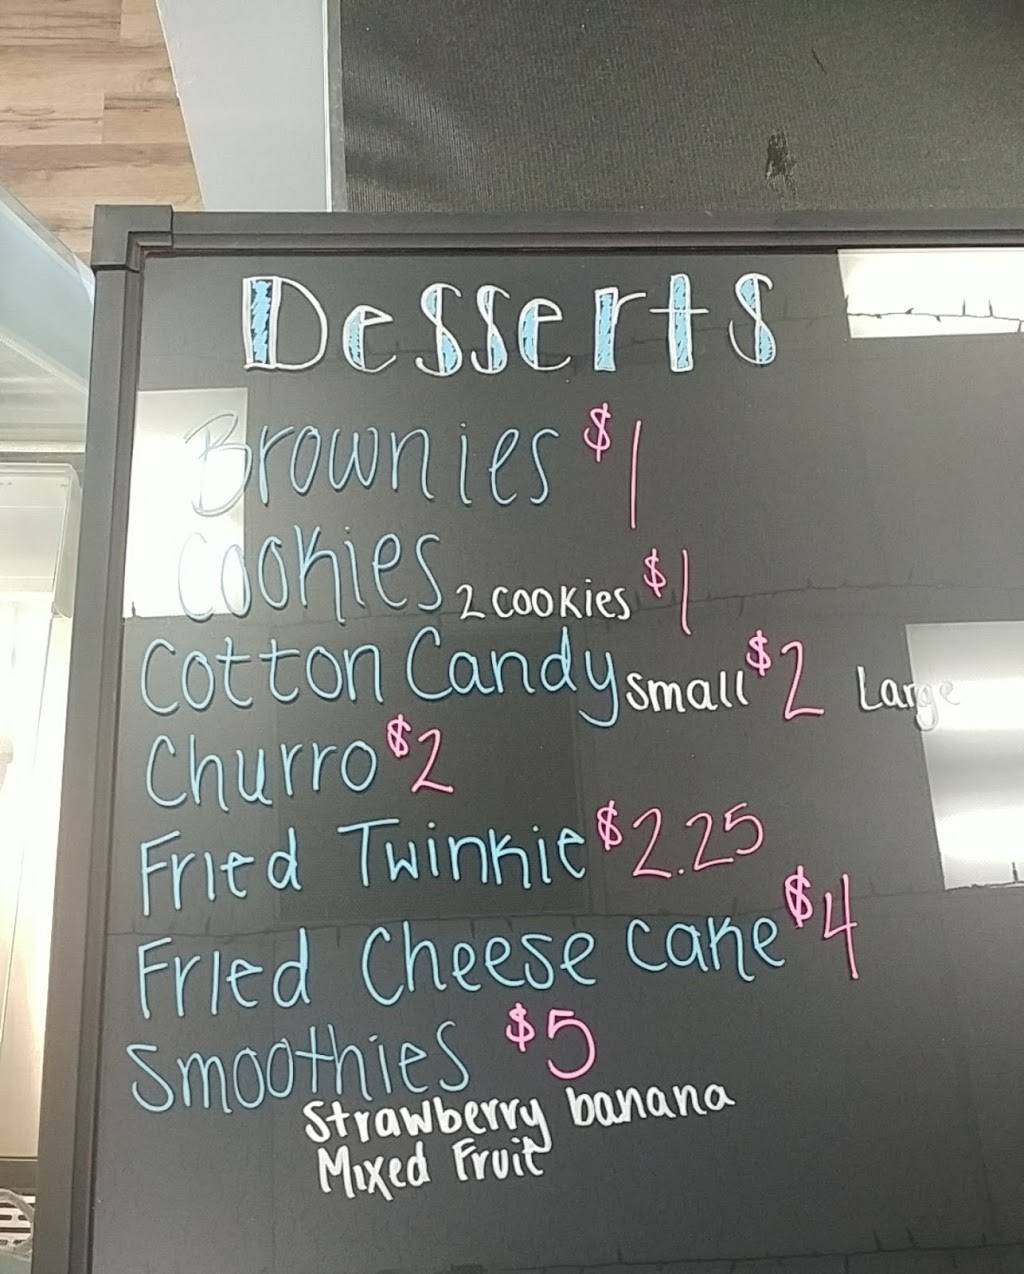 Desserts
Brownies $1
Cookies 2 cookies $1
Cotton Candy small $2 Large
Churro $2
Fried Twinkie $2.25
Fried Cheese cake $4
Smoothies $5
Strawberry banana
Mixed Fruit